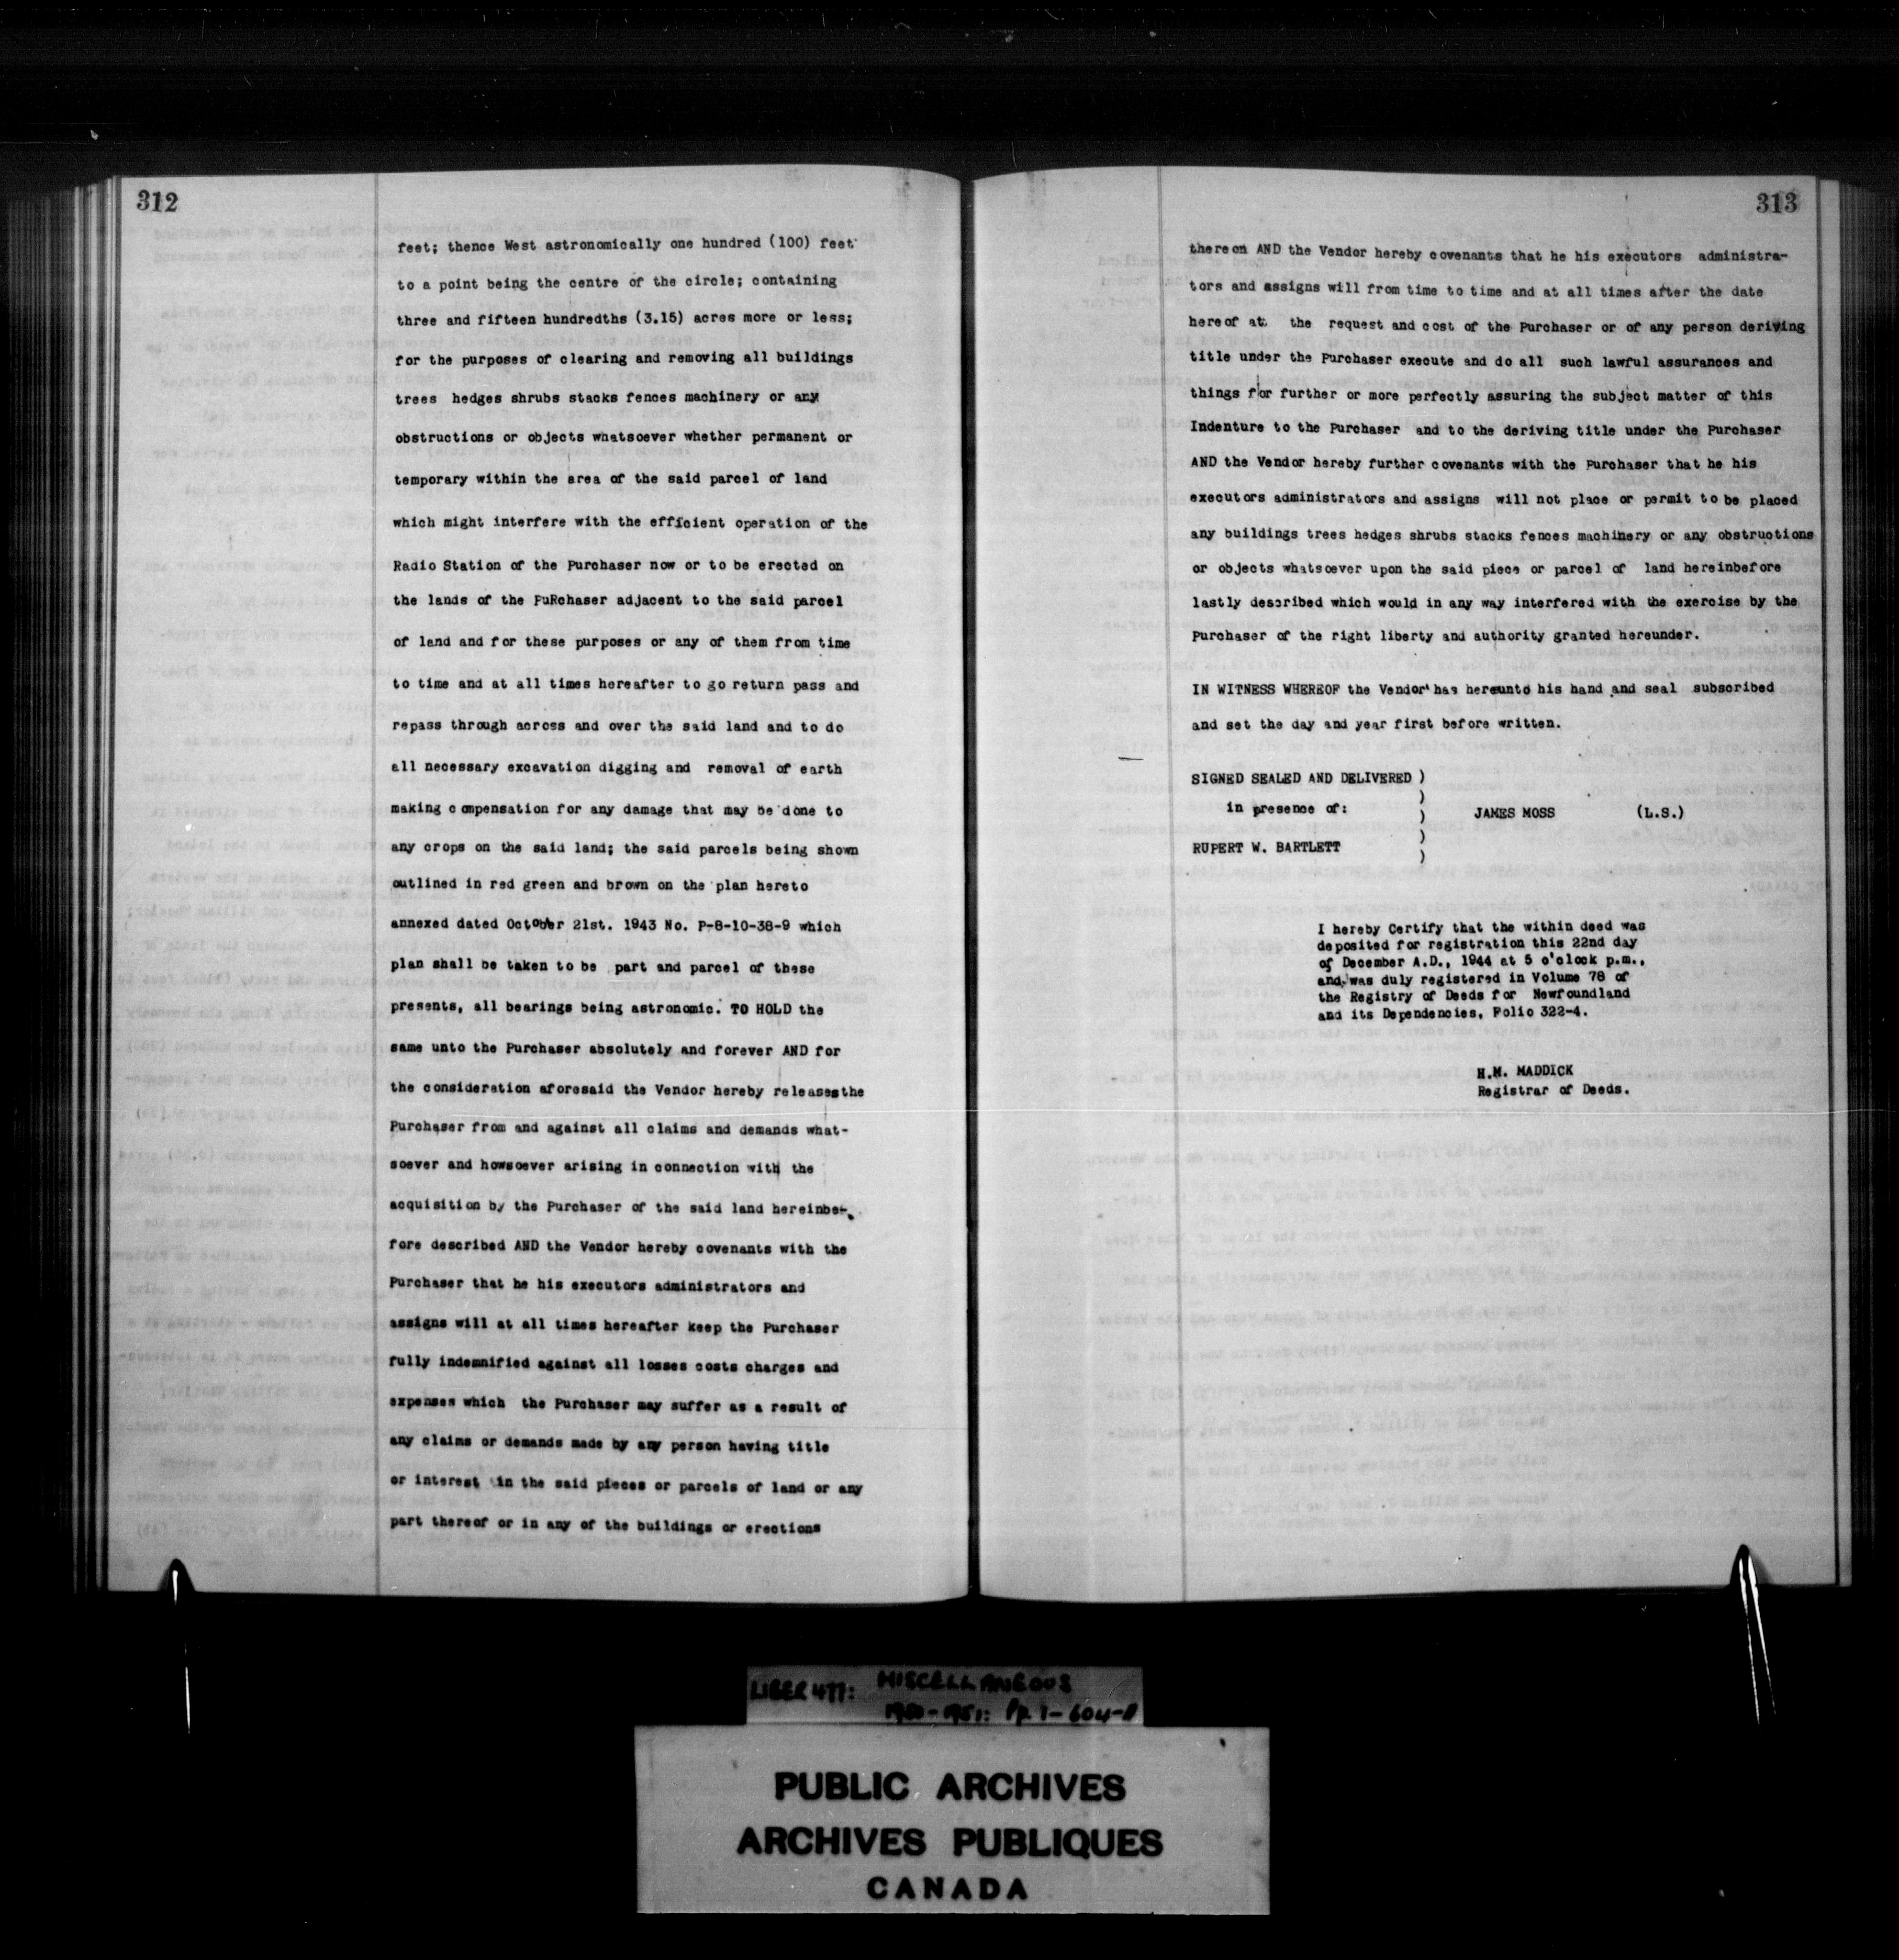 312
feet; thence West astronomically one hundred (100) feet
to a point being the centre of the circle; containing
three and fifteen hundredths (3.15) acres more or less;
for the purposes of clearing and removing all buildings
trees hedges shrubs stacks fences machinery or any
obstructions or objects whatsoever whether permanent or
temporary within the area of the said parcel of land
which might interfere with the efficient operation of the
Radio Station of the Purchaser now or to be erected on
the lands of the PuRchaser adjacent to the said parcel
of land and for these purposes or any of them from time
to time and at all times hereafter to go return pass and
repass through across and over the said land and to do
all necessary excavation digging and removal of earth
making compensation for any damage that may be done to
any crops on the said land; the said parcels being shown
outlined in red green and brown on the plan hereto
annexed dated October 21st. 1943 No. P-8-10-38-9 which
plan shall be taken to be part and parcel of these
presents, all bearings being astronomic. TO HOLD the
same unto the Purchaser absolutely and forever AND for
the consideration aforesaid the Vendor hereby releases the
Purchaser from and against all claims and demands what-
soever and howsoever arising in connection with the
acquisition by the Purchaser of the said land hereinbe-
fore described AND the Vendor hereby covenants with the
Purchaser that he his executors administrators and
assigns will at all times hereafter keep the Purchaser
fully indemnified against all losses costs charges and
expenses which the Purchaser may suffer as a result of
any claims or demands made by any person having title
or interest in the said pieces or parcels of land or any
part thereof or in any of the buildings or erections
313
thereon AND the Vendor hereby covenants that he his executors administra-
tors and assigns will from time to time and at all times after the date
hereof at the request and cost of the Purchaser or of any person deriving
title under the Purchaser execute and do all such lawful assurances and
things for further or more perfectly assuring the subject matter of this
Indenture to the Purchaser and to the deriving title under the Purchaser
AND the Vendor hereby further covenants with the Purchaser that he his
executors administrators and assigns will not place or permit to be placed
any buildings trees hedges shrubs stacks fences machinery or any obstructions
or objects whatsoever upon the said piece or parcel of land hereinbefore
lastly described which would in any way interfered with the exercise by the
Purchaser of the right liberty and authority granted hereunder.
IN WITNESS WHEREOF the Vendor has hereunto his hand and seal subscribed
and set the day and year first before written.
SIGNED SEALED AND DELIVERED )
)
in presence of: ) JAMES MOSS (L.S.)
)
RUPERT W. BARTLETT )
I hereby Certify that the within deed was
deposited for registration this 22nd day
of December A.D., 1944 at 5 o'clock p.m.,
and was duly registered in Volume 78 of
the Registry of Deeds for Newfoundland
and its Dependencies, Folio 322-4.
H.M. MADDICK
Registrar of Deeds.
LIBER 477: MISCELLANEOUS
1950-1951: Pp. 1-604-
PUBLIC ARCHIVES
ARCHIVES PUBLIQUES
CANADA